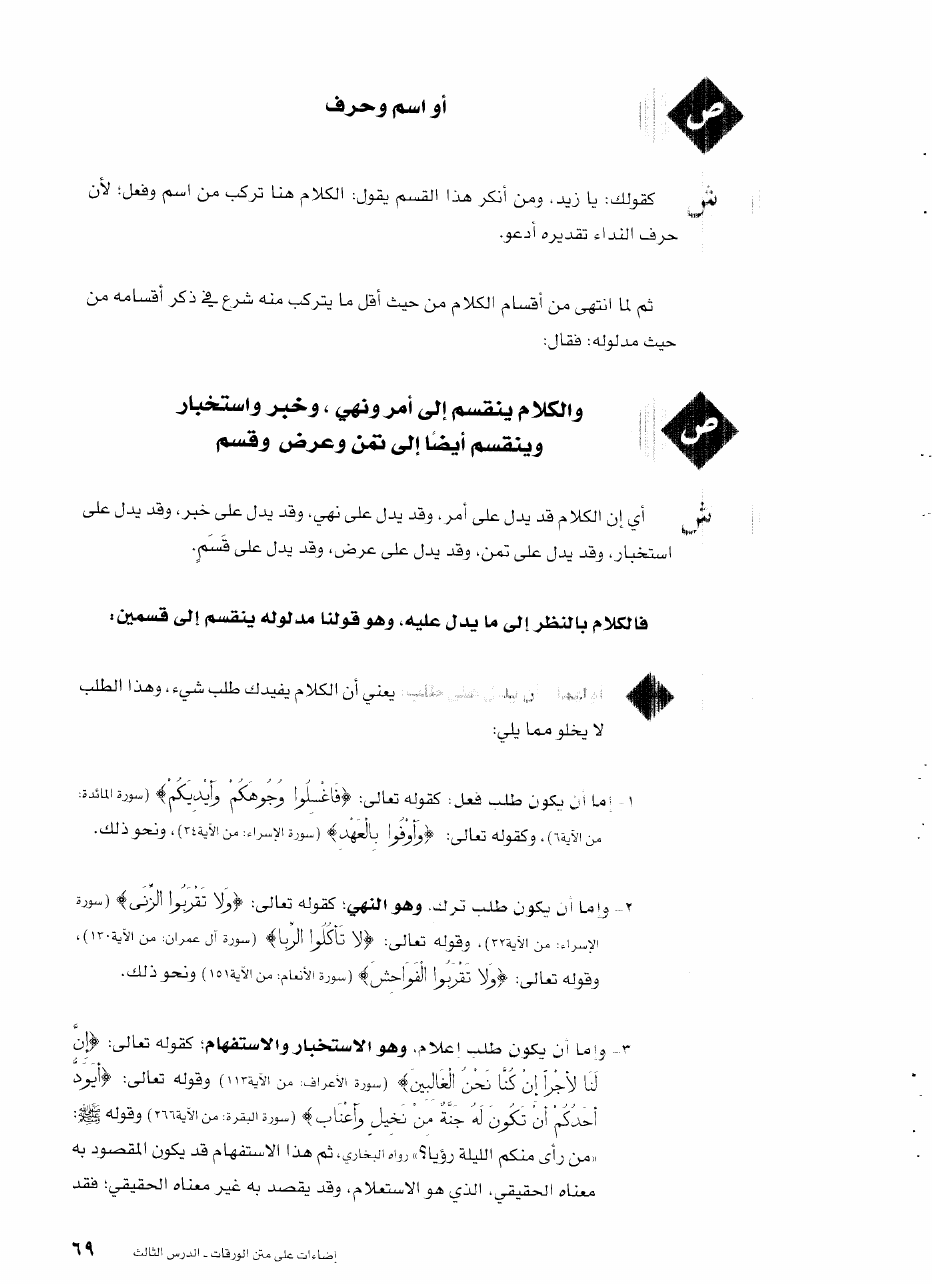 ص
أو اسم وحرف
ش
كقولك: يا زيد، ومن أنكر هذا القسم يقول: الكلام هنا تركب من اسم وفعل؛ لأن
حرف النداء تقديره أدعو.
ثم لما انتهى من أقسام الكلام من حيث أقل ما يتركب منه شرع في ذكر أقسامه من
حيث مدلوله: فقال:
ص
والكلام ينقسم إلى أمر ونهي، وخبر واستخبار
وينقسم أيضًا إلى تمن وعرض وقسم
ش
أي إن الكلام قد يدل على أمر، وقد يدل على نهي، وقد يدل على خبر، وقد يدل على
استخبار، وقد يدل على تمن، وقد يدل على عرض، وقد يدل على قَسَمٍ.
فالكلام بالنظر إلى ما يدل عليه، وهو قولنا مدلوله ينقسم إلى قسمين:
أن يدل على طلب: يعني أن الكلام يفيدك طلب شيء، وهذا الطلب
لا يخلو مما يلي:
١- إما أن يكون طلب فعل: كقوله تعالى: ﴿فَاغْسِلُوا وُجُوهَكُمْ وَأَيْدِيَكُمْ﴾ (سورة المائدة:
من الآية٦)، وكقوله تعالى: ﴿وَأَوْفُوا بِالْعَهْدِ﴾ (سورة الإسراء: من الآية٣٤)، ونحو ذلك.
٢- وإما أن يكون طلب ترك، وهو النهي؛ كقوله تعالى: ﴿وَلا تَقْرَبُوا الزِّنَى﴾ (سورة
الإسراء: من الآية٣٢)، وقوله تعالى: ﴿لا تَأْكُلُوا الرِّبا﴾ (سورة آل عمران: من الآية١٣٠)،
وقوله تعالى: ﴿وَلا تَقْرَبُوا الْفَوَاحِشَ﴾ (سورة الأنعام: من الآية١٥١) ونحو ذلك.
٣- وإما أن يكون طلب إعلام، وهو الاستخبار والاستفهام؛ كقوله تعالى: ﴿إِنَّ
لَنَا لأَجْراً إِنْ كُنَّا نَحْنُ الْغَالِبِينَ﴾ (سورة الأعراف: من الآية١١٣) وقوله تعالى: ﴿أَيَوَدُّ
أَحَدُكُمْ أَنْ تَكُونَ لَهُ جَنَّةٌ مِنْ نَخِيلٍ وَأَعْنَابٍ﴾ (سورة البقرة: من الآية٢٦٦) وقوله ﷺ:
«من رأى منكم الليلة رؤيا؟» رواه البخاري، ثم هذا الاستفهام قد يكون المقصود به
معناه الحقيقي، الذي هو الاستعلام، وقد يقصد به غير معناه الحقيقي؛ فقد
إضاءات على متن الورقات - الدرس الثالث
٦٩